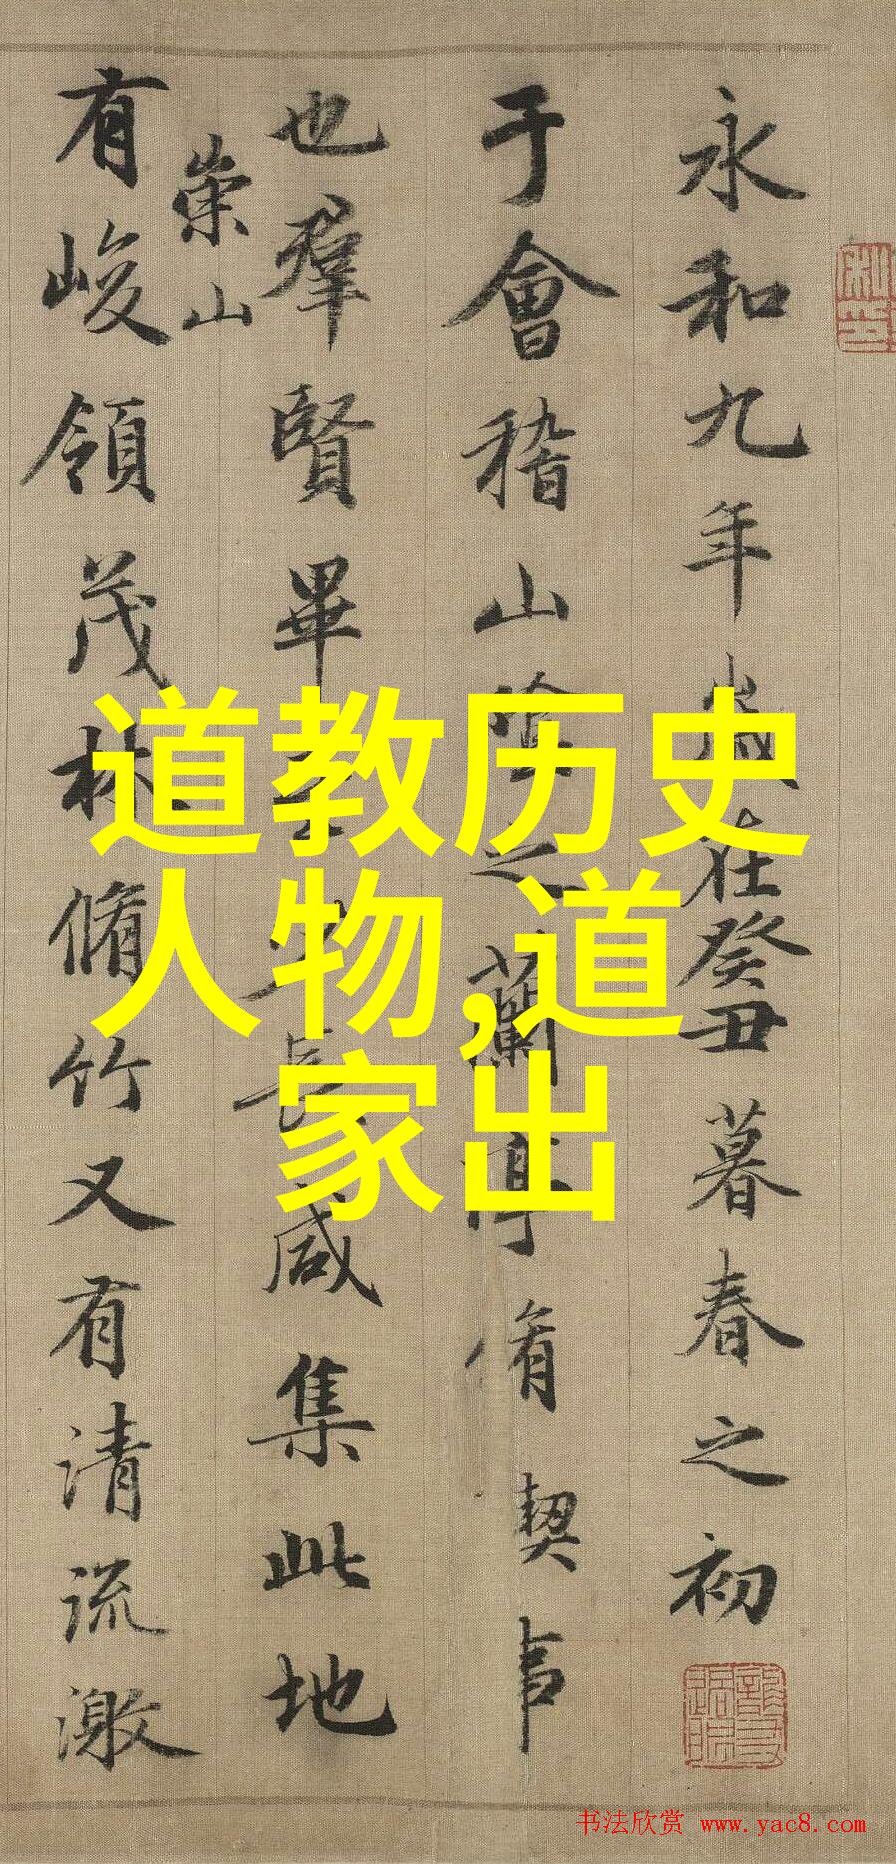 永和九年歲在癸丑暮春之初
于會稽山陰之蘭亭脩契事
也羣賢畢至少長咸集此地
崇山
有峻領茂林脩竹又有清流激
道教历史
人物,道
家出
书法欣赏 www.yac8.com